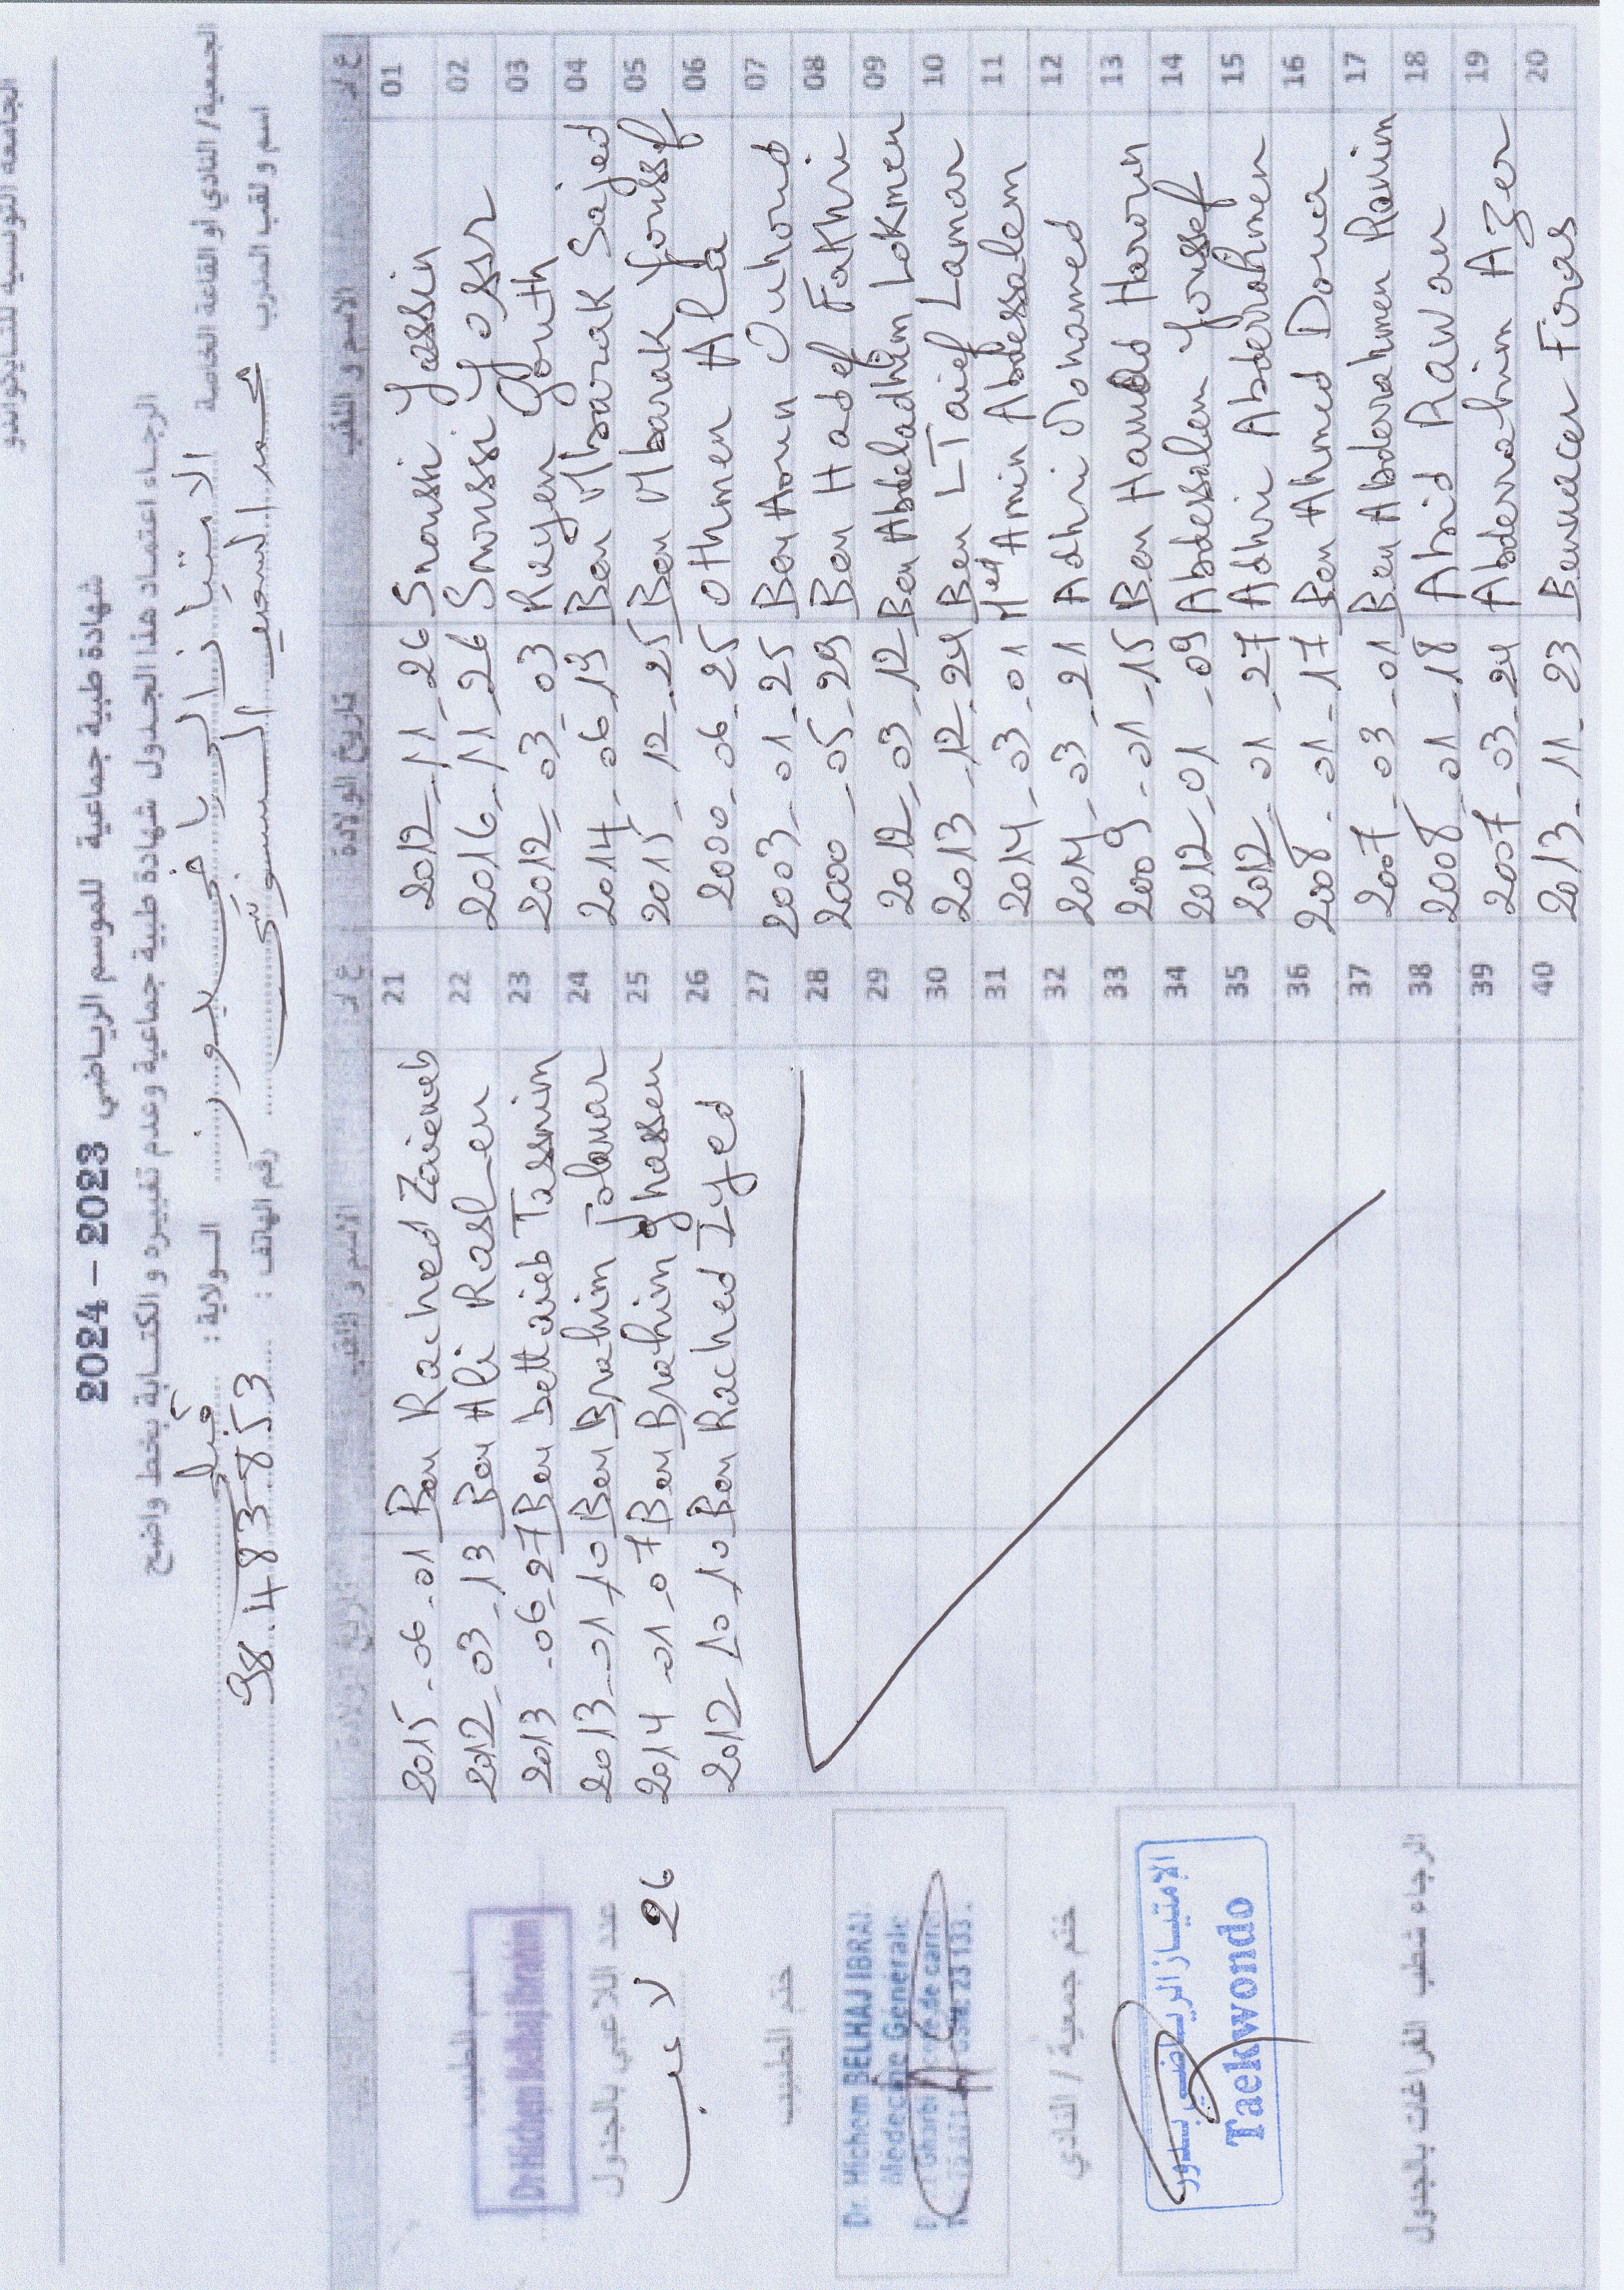 الجامعة التونسية للتايكواندو
شهادة طبية جماعية للموسم الرياضي 2023 – 2024
الرجاء اعتماد هذا الجدول شهادة طبية جماعية وعدم تغييره والكتابة بخط واضح
الجمعية/ النادي أو القاعة الخاصة الامتياز الرياضي بدور الولاية : قبلي
اسم و لقب المدرب محمد السعيد السنوسي رقم الهاتف : 98.483.853
ع/ر الاسم و اللقب تاريخ الولادة ع/ر الاسم و اللقب تاريخ الولادة
01 Snoussi Yassin 2012_11_26 21 Ben Rached Zaieneb 2015_06_01
02 Snoussi Yossr 2016_11_26 22 Ben Ali Raslen 2012_03_13
03 Rayen Gouth 2012_03_03 23 Ben bettaieb Tassnim 2013_06_27
04 Ben Mbarak Sajed 2014_06_19 24 Ben Brahim 2013_01_10
05 Ben Mbarak Youssef 2015_12_25 25 Ben Brahim Ghassen 2014_01_07
06 Othmen Ala 2000_06_25 26 Ben Rached Iyed 2012_10_10
07 Ben Amun 2003_01_25 27
08 Ben Hadef Fakhri 2000_05_29 28
09 Ben Abdeladhim Lokmen 2012_03_12 29
10 Ben LTaief Lamar 2013_12_24 30
11 Med Amin Abdessalem 2014_03_01 31
12 Adhri Mohamed 2014_03_21 32
13 Ben Hamed Haroun 2009_01_15 33
14 Abdessalem Youssef 2012_01_09 34
15 Adhri Abderrahmen 2012_01_27 35
16 Ben Ahmed Doua 2008_01_17 36
17 Ben Abderrahmen Ranim 2007_03_01 37
18 Abid Rawan 2008_01_18 38
19 Abderrahim Azer 2007_03_24 39
20 Bennacer Firas 2013_11_23 40
الطبيب
Dr Hichem Belhaj Ibrahim
عدد اللاعبي بالجدول
26 لاعب
ختم الطبيب
Dr. Hichem BELHAJ IBRAH
Medecine Générale
ختم جمعية / النادي
الإمتياز الرياضي بدور
Taekwondo
الرجاء شطب الفراغات بالجدول